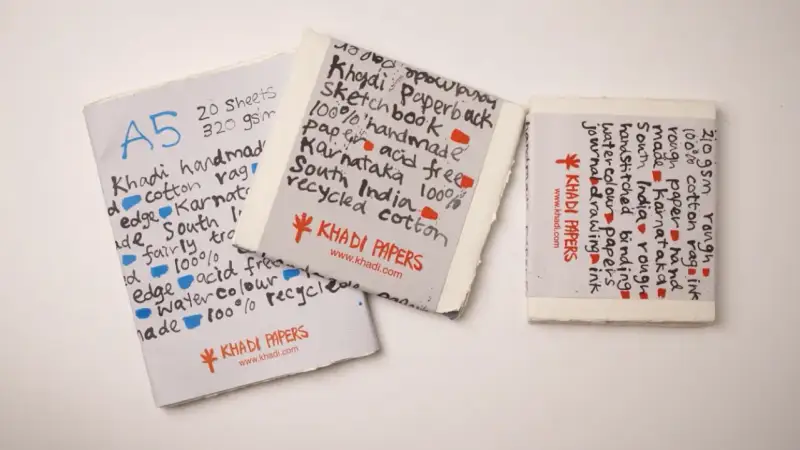 A5
20 Sheets
320 gsm
Khadi handmad
d cotton rag
edge Karnat
de South I
fairly tra
d 100%
edge acid free
water colour
made 100% recycle
KHADI PAPERS
www.khadi.com
Khadi Paperback
Sketchbook
100% handmade
paper acid free
Karnataka 100%
South India
recycled cotton
KHADI PAPERS
www.khadi.com
210 gsm rough
100% cotton rag ink
rough paper hand
made Karnataka
South India rough
handstitched binding
watercolour papers
journal drawing ink
KHADI PAPERS
www.khadi.com